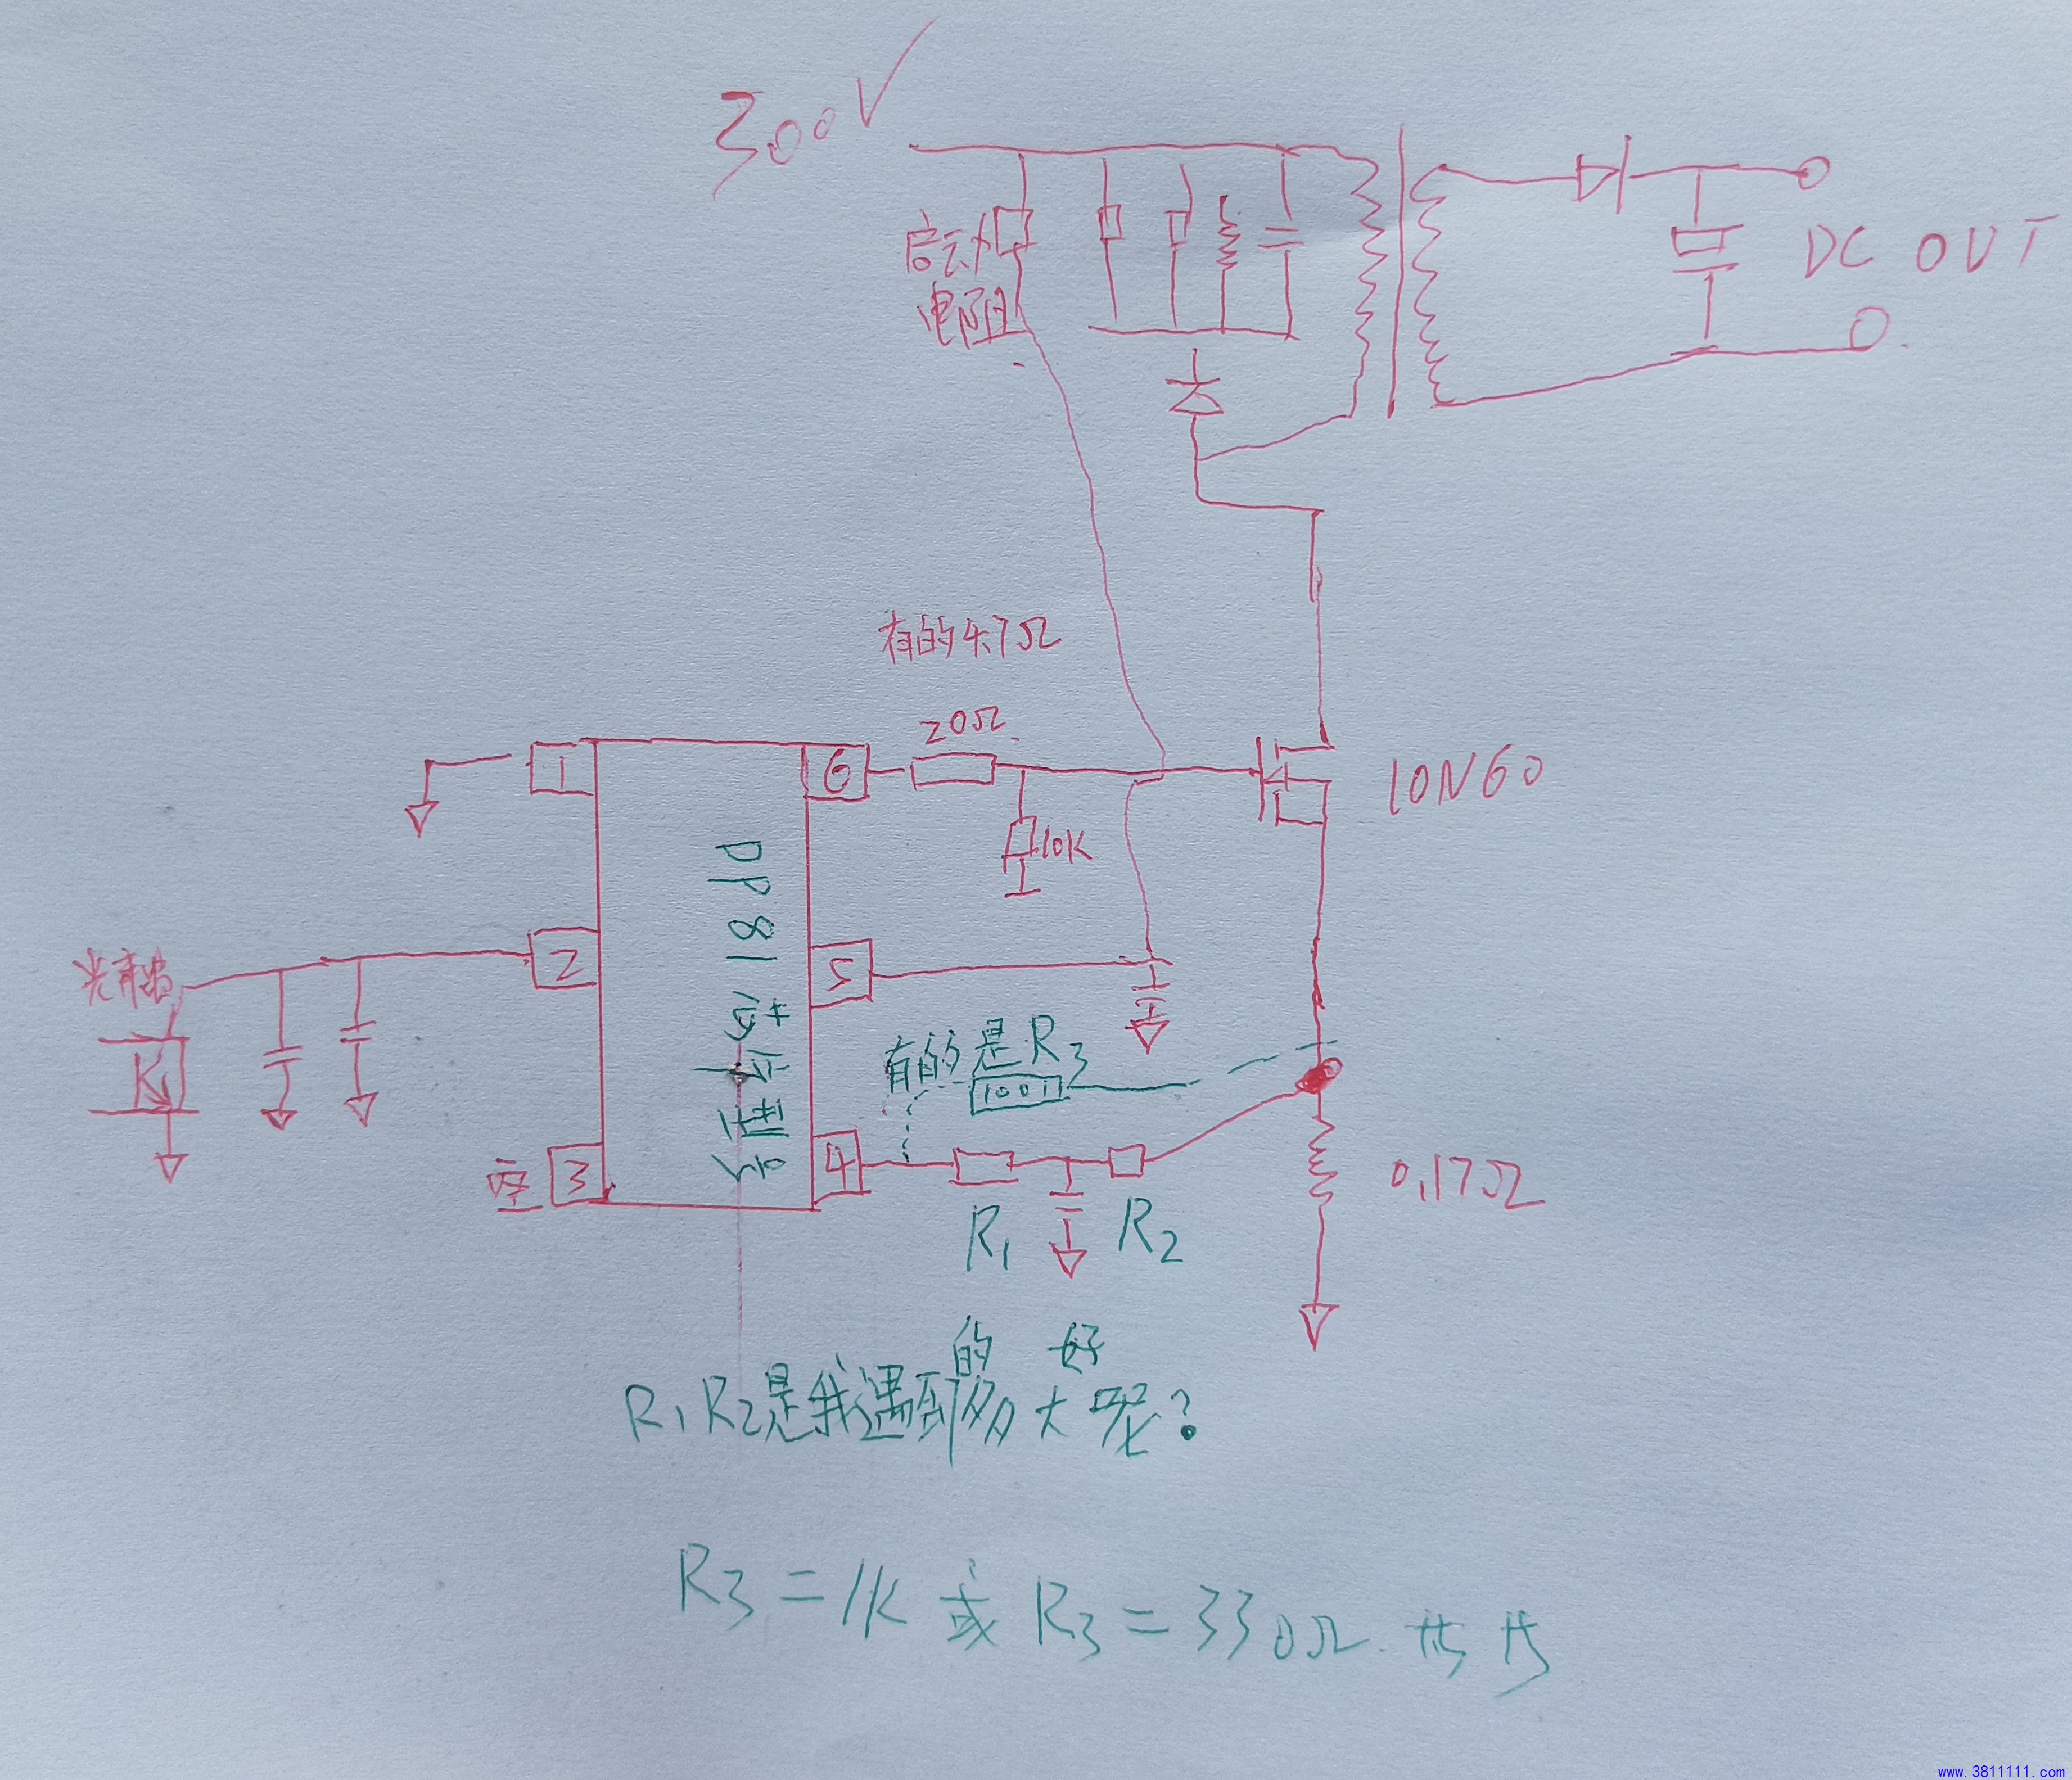 300V
启动
电阻
DC OUT
有的4.7Ω
20Ω
1
6
10K
10N60
DP81
2
5
有的是R3
1001
3
空
4
R1
R2
0.17Ω
R1R2是我遇到的多大好呢?
R3=1K 或 R3=330Ω.
www.3811111.com